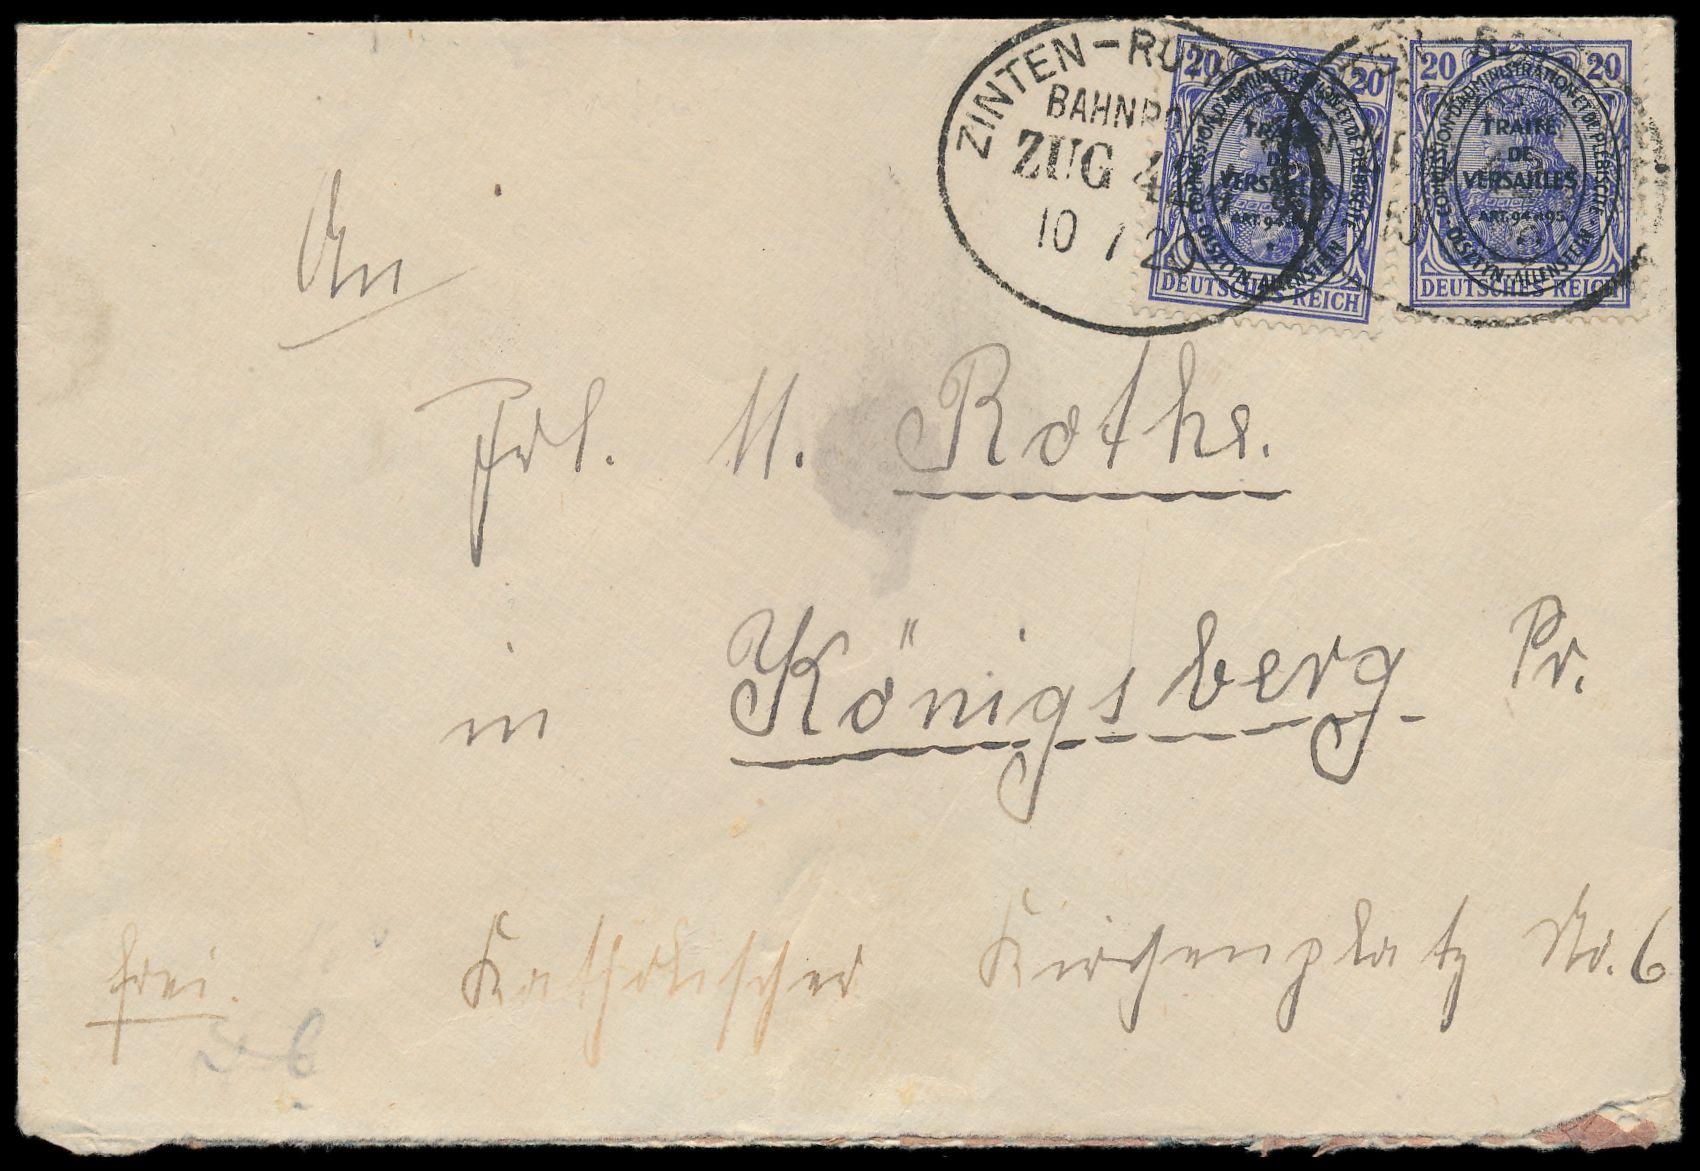 ZINTEN – RU
BAHNPO
ZUG 4
10 7 20
20 20
COMMISSION D'ADMINISTRATION ET DE PLÉBISCITE
TRAITÉ
DE
VERSAILLES
ART. 94 et 95
OLSZTYN-ALLENSTEIN
DEUTSCHES REICH
20 20
COMMISSION D'ADMINISTRATION ET DE PLÉBISCITE
TRAITÉ
DE
VERSAILLES
ART. 94 et 95
OLSZTYN-ALLENSTEIN
DEUTSCHES REICH
An
Frl. M. Rothe.
in Königsberg Pr.
frei. Katholischer Kirchenplatz No. 6